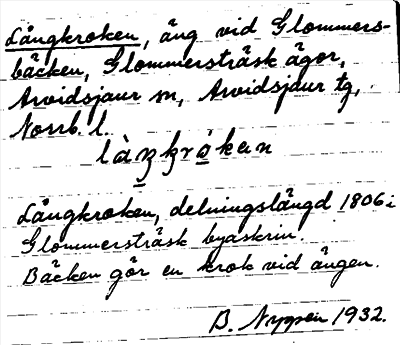 Långkroken, äng vid Glommers-
bäcken, Glommersträsk ägor,
Arvidsjaur sn, Arvidsjaur tg,
Norrb. l.
Långkroken, delningslängd 1806 i
Glommersträsk byaskrin.
Bäcken gör en krok vid ängen.
B. Nyppen 1932.